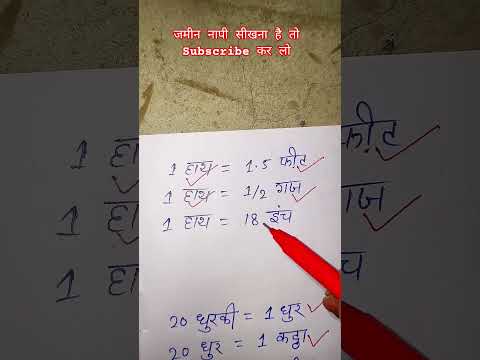 जमीन नापी सीखना है तो
Subscribe कर लो
1 हाथ = 1.5 फ़ीट
1 हाथ = 1/2 गज
1 हाथ = 18 इंच
20 धुरकी = 1 धुर
20 धुर = 1 कट्ठा